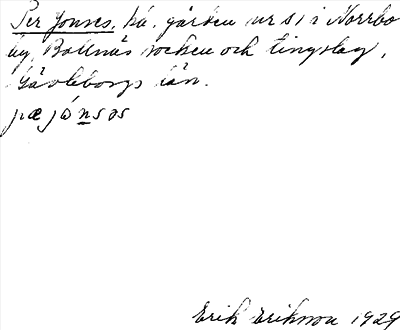 Per Jonses, bå. gården nr 51 i Norrbo
by, Bollnäs socken och tingslag,
Gävleborgs län.
pæ jónsəs
Erik Erikson 1929